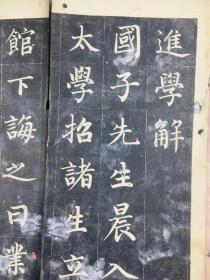 進學解
國子先生晨入
太學招諸生立
館下誨之曰業